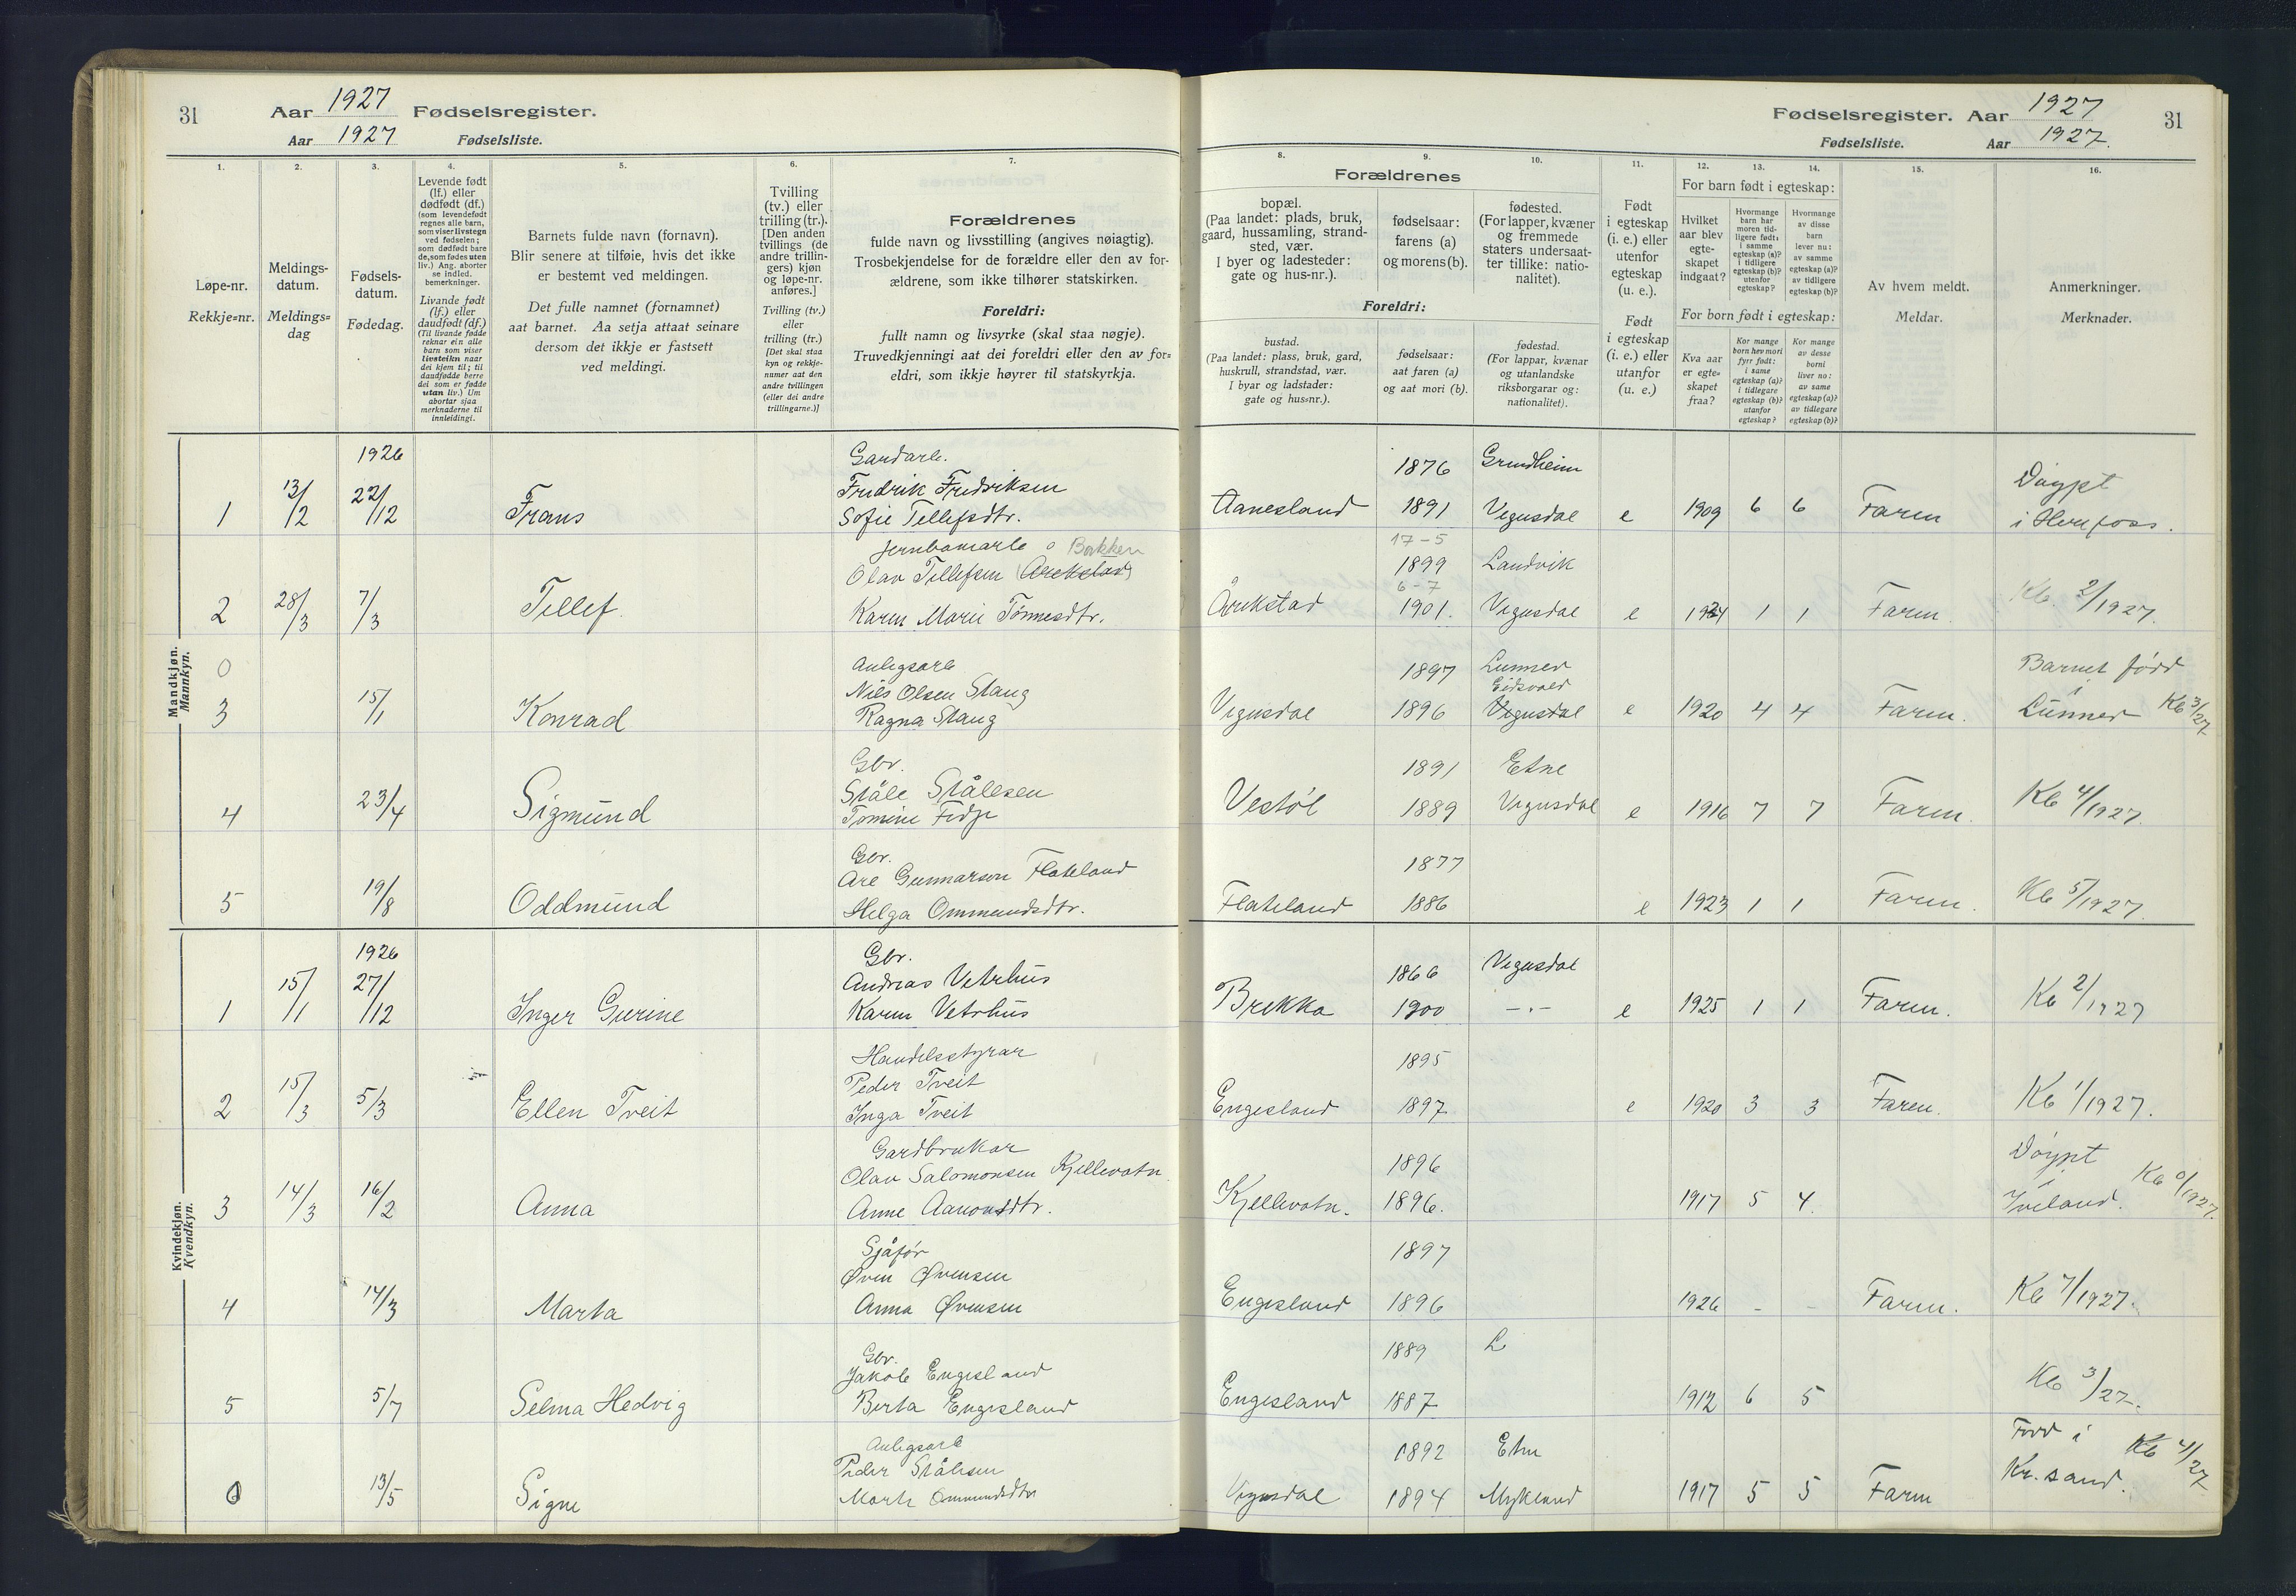 31
Aar 1927 Fødselsregister.
Aar 1927 Fødselsliste.
1.
2.
3.
4.
5.
6.
7.
Løpe-nr.
Rekkje=nr.
Meldings-
datum.
Meldings=
dag
Fødsels-
datum.
Fødedag.
Levende født
(lf.) eller
dødfødt (df.)
(som levendefødt
regnes alle barn,
som viser livstegn
ved fødselen;
som dødfødt bare
de, som fødes uten
liv.) Ang. aborter
se indled.
bemerkninger.
Livande født
(lf.) eller
daudfødt (df.)
(Til livande fødde
reknar ein alle
barn som viser
livsteikn naar
dei kjem til; til
daudfødde berre
dei som er fødde
utan liv.) Um
abortar sjaa
merknaderne til
innleidingi.
Barnets fulde navn (fornavn).
Blir senere at tilføie, hvis det ikke
er bestemt ved meldingen.
Det fulle namnet (fornamnet)
aat barnet. Aa setja attaat seinare
dersom det ikkje er fastsett
ved meldingi.
Tvilling
(tv.) eller
trilling (tr.).
[Den anden
tvillings (de
andre trillin-
gers) kjøn
og løpe-nr.
anføres.]
Tvilling (tv.)
eller
trilling (tr.)
[Det skal staa
kyn og rekkje-
numer aat den
andre tvillingen
(eller dei andre
trillingarne.)]
Forældrenes
fulde navn og livsstilling (angives nøiagtig).
Trosbekjendelse for de forældre eller den av for-
ældrene, som ikke tilhører statskirken.
Foreldri:
fullt namn og livsyrke (skal staa nøgje).
Truvedkjenningi aat dei foreldri eller den av for=
eldri, som ikkje høyrer til statskyrkja.
Mandkjøn.
Mannkyn.
1926
Gardarb.
Fredrik Fredriksen
1 13/2 22/12 Frans Sofie Tellefsdtr.
Jernbanearb o Bakken
Olav Tellefsen (Arekstad)
2 28/3 7/3 Tellef. Karen Marie Tønnesdtr.
0
Anlegsarb
Nils Olsen Staug
3 15/1 Konrad Ragna Staug
Gbr.
Ståle Stålesen
4 23/4 Sigmund Tomine Fidje
Gbr.
Are Gunnarson Flateland
5 19/8 Oddmund Helga Ommundsdtr.
Kvindekjøn.
Kvendkyn.
1926
Gbr.
Andreas Vetrhus
1 15/1 27/12 Inger Gurine Karen Vetrhus
Handelsstyrar
Peder Tveit
2 15/3 5/3 Ellen Tveit Inga Tveit
Gardbrukar
Olav Salomonsen Kjellevatn
3 14/3 16/2 Anna Anne Aanonsdtr.
Sjåfør
Øven Øvensen
4 14/3 Marta Anna Øvensen
Gbr.
Jakob Engesland
5 5/7 Selma Hedvig Berta Engesland
Anlegsarb
Peder Stålesen
6 13/5 Signe Marte Ommundsdtr
Fødselsregister. Aar 1927
31
Fødselsliste. Aar 1927.
8.
9.
10.
11.
12.
13.
14.
15.
16.
Forældrenes
bopæl.
(Paa landet: plads, bruk,
gaard, hussamling, strand-
sted, vær.
I byer og ladesteder:
gate og hus-nr.).
fødselsaar:
farens (a)
og morens (b).
fødested.
(For lapper, kvæner
og fremmede
staters undersaat-
ter tillike: natio-
nalitet).
Foreldri:
bustad.
(Paa landet: plass, bruk, gard,
huskrull, strandstad, vær.
I byar og ladstader:
gate og hus=nr.).
fødselsaar:
aat faren (a)
og aat mori (b).
fødestad.
(For lappar, kvænar
og utanlandske
riksborgarar og:
nationalitet).
Født
i egteskap
(i. e.) eller
utenfor
egteskap
(u. e.).
Født
i egteskap
(i. e.) eller
utanfor
(u. e.)
For barn født i egteskap:
Hvilket
aar blev
egte-
skapet
indgaat?
Hvormange
barn har
moren tid-
ligere født:
i samme
egteskap (a)?
i tidligere
egteskap (b)?
utenfor
egteskap?
Hvormange
av disse
barn
lever nu:
av samme
egteskap (a)?
av tidligere
egteskap (b)?
For born født i egteskap:
Kva aar
er egte=
skapet
fraa?
Kor mange
born hev mori
fyrr født:
i same
egteskap (a)?
i tidlegare
egteskap (b)?
utanfor
egteskap?
Kor mange
av desse
borni
liver no:
av same
egteskap (a)?
av tidlegare
egteskap (b)?
Av hvem meldt.
Meldar.
Anmerkninger.
Merknader.
1876 Grundheim
Døypt
Aanesland 1891 Vegusdal e 1909 6 6 Faren i Herefoss.
17-5
1899 Landvik
6-7
Årekstad 1901. Vegusdal e 1924 1 1 Faren. Kb. 2/1927.
1897 Lunner
Eidsvold
Barnet født
i
Vegusdal 1896 Vegusdal e 1920 4 4 Faren. Lunner Kb 3/27
1891 Etne
Vestøl 1889 Vegusdal e 1916 7 7 Faren. Kb 4/1927.
1877
Flateland 1886 e 1923 1 1 Faren. Kb 5/1927.
1866 Vegusdal
Brekka 1900 -"- e 1925 1 1 Faren. Kb 2/1927
1895
Engesland 1897 e 1920 3 3 Faren. Kb 1/1927.
1896
Døypt
i
Kjellevatn. 1896. 1917 5 4. Iveland. Kb 0/1927.
1897
Engesland 1896 1926 - - Faren. Kb 7/1927.
1889 L
Engesland 1887 1912 6 5 Kb 3/27.
1892 Etne
Fødd i
Vegusdal 1894 Mykland 1917 5 5 Faren Kr.sand. Kb 4/27